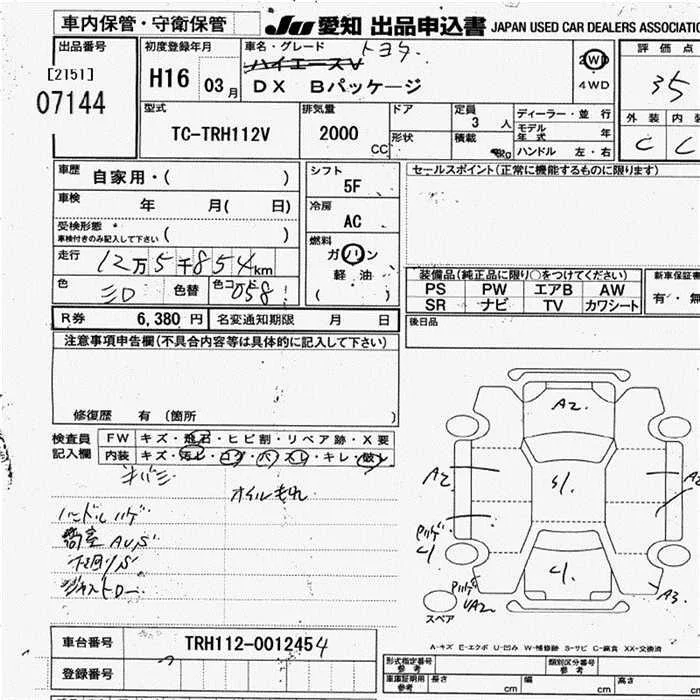 車内保管・守衛保管
JU 愛知 出品申込書 JAPAN USED CAR DEALERS ASSOCIATIO
出品番号
[2151]
07144
初度登録年月
H16 03月
車名・グレード トヨタ
ハイエースV
DX Bパッケージ
2WD
4WD
評価点
35
外装 内装
C C
型式
TC-TRH112V
排気量
2000 CC
ドア
形状
定員
3人
積載 kg
ディーラー・並行
モデル年式 年
ハンドル 左・右
車歴 自家用・( )
車検 年 月( 日)
受検形態 ( )
車検付きのみ記入して下さい
走行 12万5千854km
色 シロ 色替 色コード 058
シフト
5F
冷房
AC
燃料
ガソリン
軽・油
( )
セールスポイント(正常に機能するものに限ります)
装備品(純正品に限り○をつけてください)
PS PW エアB AW
SR ナビ TV カワシート
新車保証書
有・無
後日品
R券 6,380円 名変通知期限 月 日
注意事項申告欄(不具合内容等は具体的に記入して下さい)
修復歴 有 (箇所 )
検査員記入欄
FW キズ・飛石・ヒビ割・リペア跡・X要
内装 キズ・汚レ・コゲ・穴・スレ・キレ・破レ
キバミ
オイルもれ
ハンドルハゲ
荷室AU,S
下回りS
ジャストロー
A2
A2
S1
A2
ハゲ
U1
U1
ハゲ
UA2
A3
スペア
A-キズ E-エクボ U-凹み W-補修跡 S-サビ C-腐食 XX-交換済
車台番号 TRH112-0012454
登録番号
型式指定番号
参考
類別区分番号
参考
車庫証明用
参考
長さ cm 幅 cm 高さ cm